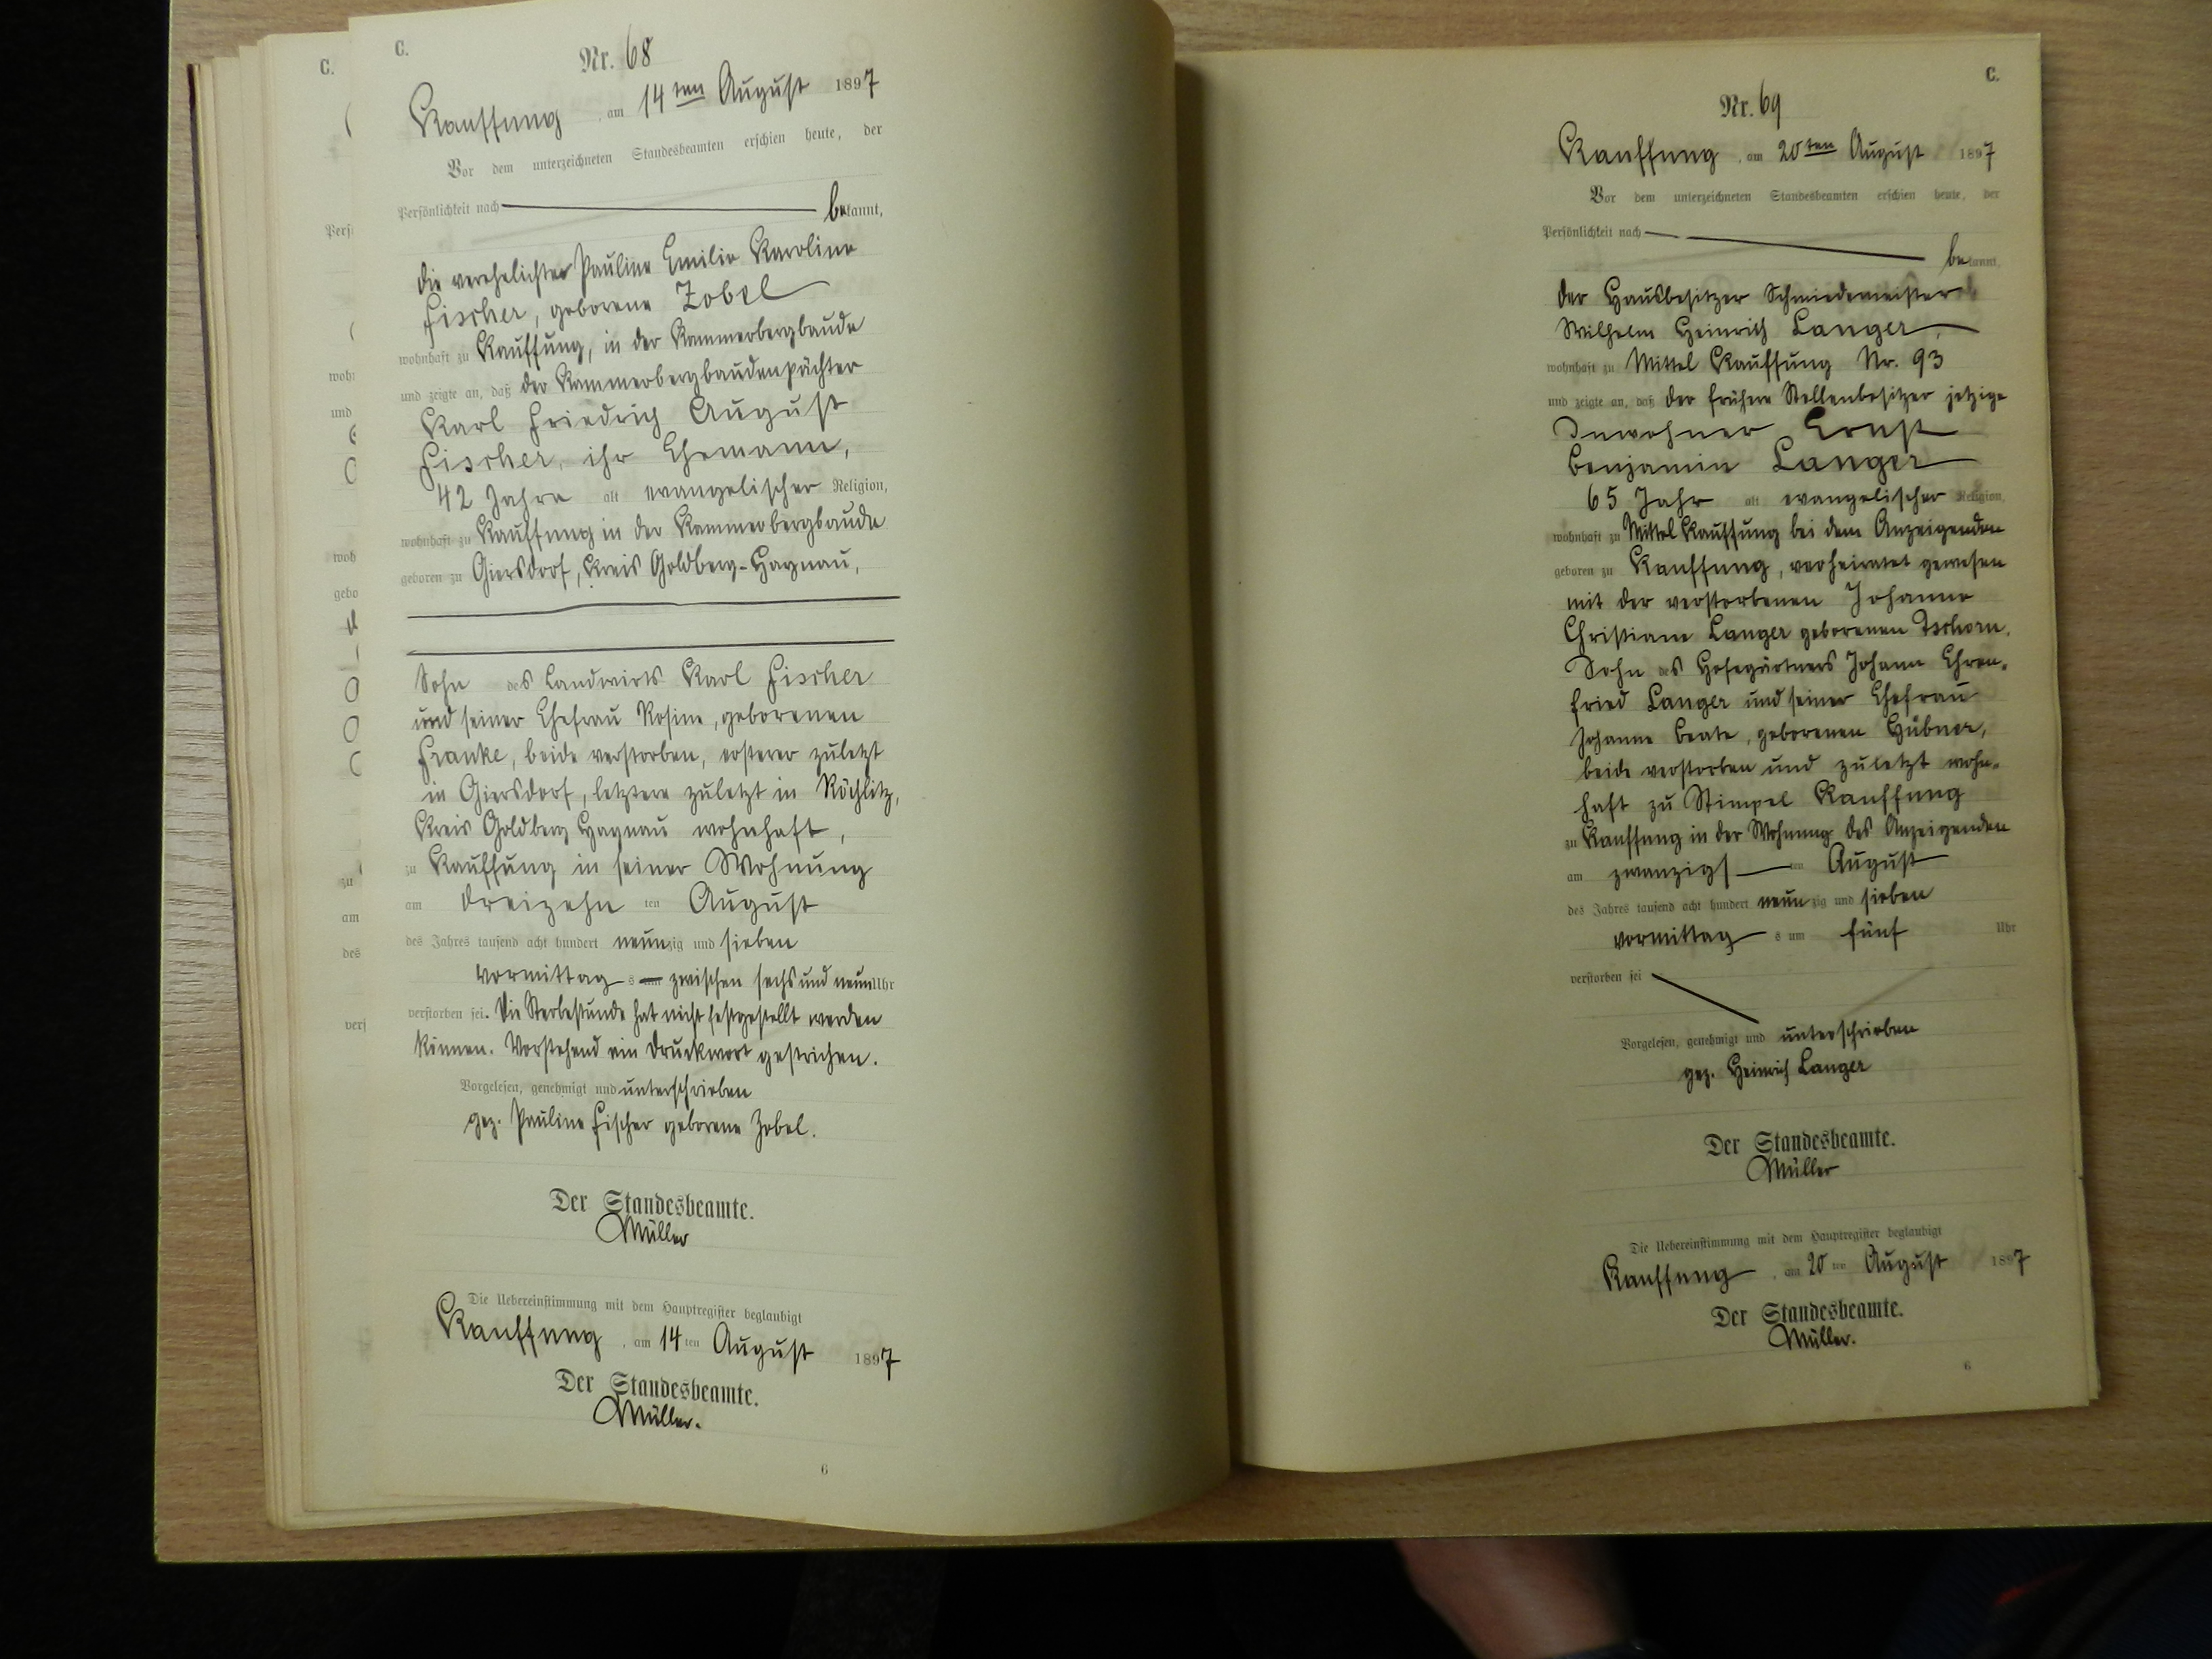 C.
Nr. 68
Kauffung, am 14ten August 1897
Vor dem unterzeichneten Standesbeamten erschien heute, der
Persönlichkeit nach bekannt,
die verehelichte Pauline Emilie Karoline
Fischer, geborene Zobel
wohnhaft zu Kauffung, in der Kammerbergbaude
und zeigte an, daß der Kammerbergbaudenpächter
Karl Friedrich August
Fischer, ihr Ehemann,
42 Jahre alt evangelischer Religion,
wohnhaft zu Kauffung in der Kammerbergbaude
geboren zu Giersdorf, Kreis Goldberg-Haynau,
Sohn des Landwirts Karl Fischer
und seiner Ehefrau Rosine, geborenen
Franke, beide verstorben, ersterer zuletzt
in Giersdorf, letztere zuletzt in Röchlitz,
Kreis Goldberg Haynau wohnhaft,
zu Kauffung in seiner Wohnung
am dreizehnten August
des Jahres tausend acht hundert neunzig und sieben
Vormittags um zwischen sechs und neun Uhr
verstorben sei. Die Sterbestunde hat nicht festgestellt werden
können. Vorstehend ein Druckwort gestrichen.
Vorgelesen, genehmigt und unterschrieben
gez. Pauline Fischer geborene Zobel.
Der Standesbeamte.
Müller
Die Uebereinstimmung mit dem Hauptregister beglaubigt
Kauffung, am 14ten August 1897
Der Standesbeamte.
Müller.
6
C.
Nr. 69
Kauffung, am 20ten August 1897
Vor dem unterzeichneten Standesbeamten erschien heute, der
Persönlichkeit nach
bekannt,
der Hausbesitzer Schmiedemeister
Wilhelm Heinrich Langer,
wohnhaft zu Mittel Kauffung Nr. 93
und zeigte an, daß der frühere Stellenbesitzer jetzige
Inwohner Ernst
Benjamin Langer
65 Jahr alt evangelischer Religion,
wohnhaft zu Mittel Kauffung bei dem Anzeigenden
geboren zu Kauffung, verheiratet gewesen
mit der verstorbenen Johanne
Christiane Langer geborenen Tschorn.
Sohn des Hofegärtners Johann Ehren-
fried Langer und seiner Ehefrau
Johanne Beate, geborenen Hübner,
beide verstorben und zuletzt wohn-
haft zu Stimpel Kauffung
zu Kauffung in der Wohnung des Anzeigenden
am zwanzigsten August
des Jahres tausend acht hundert neunzig und sieben
vormittags um fünf Uhr
verstorben sei
Vorgelesen, genehmigt und unterschrieben
gez. Heinrich Langer
Der Standesbeamte.
Müller
Die Uebereinstimmung mit dem Hauptregister beglaubigt
Kauffung, am 20ten August 1897
Der Standesbeamte.
Müller.
6